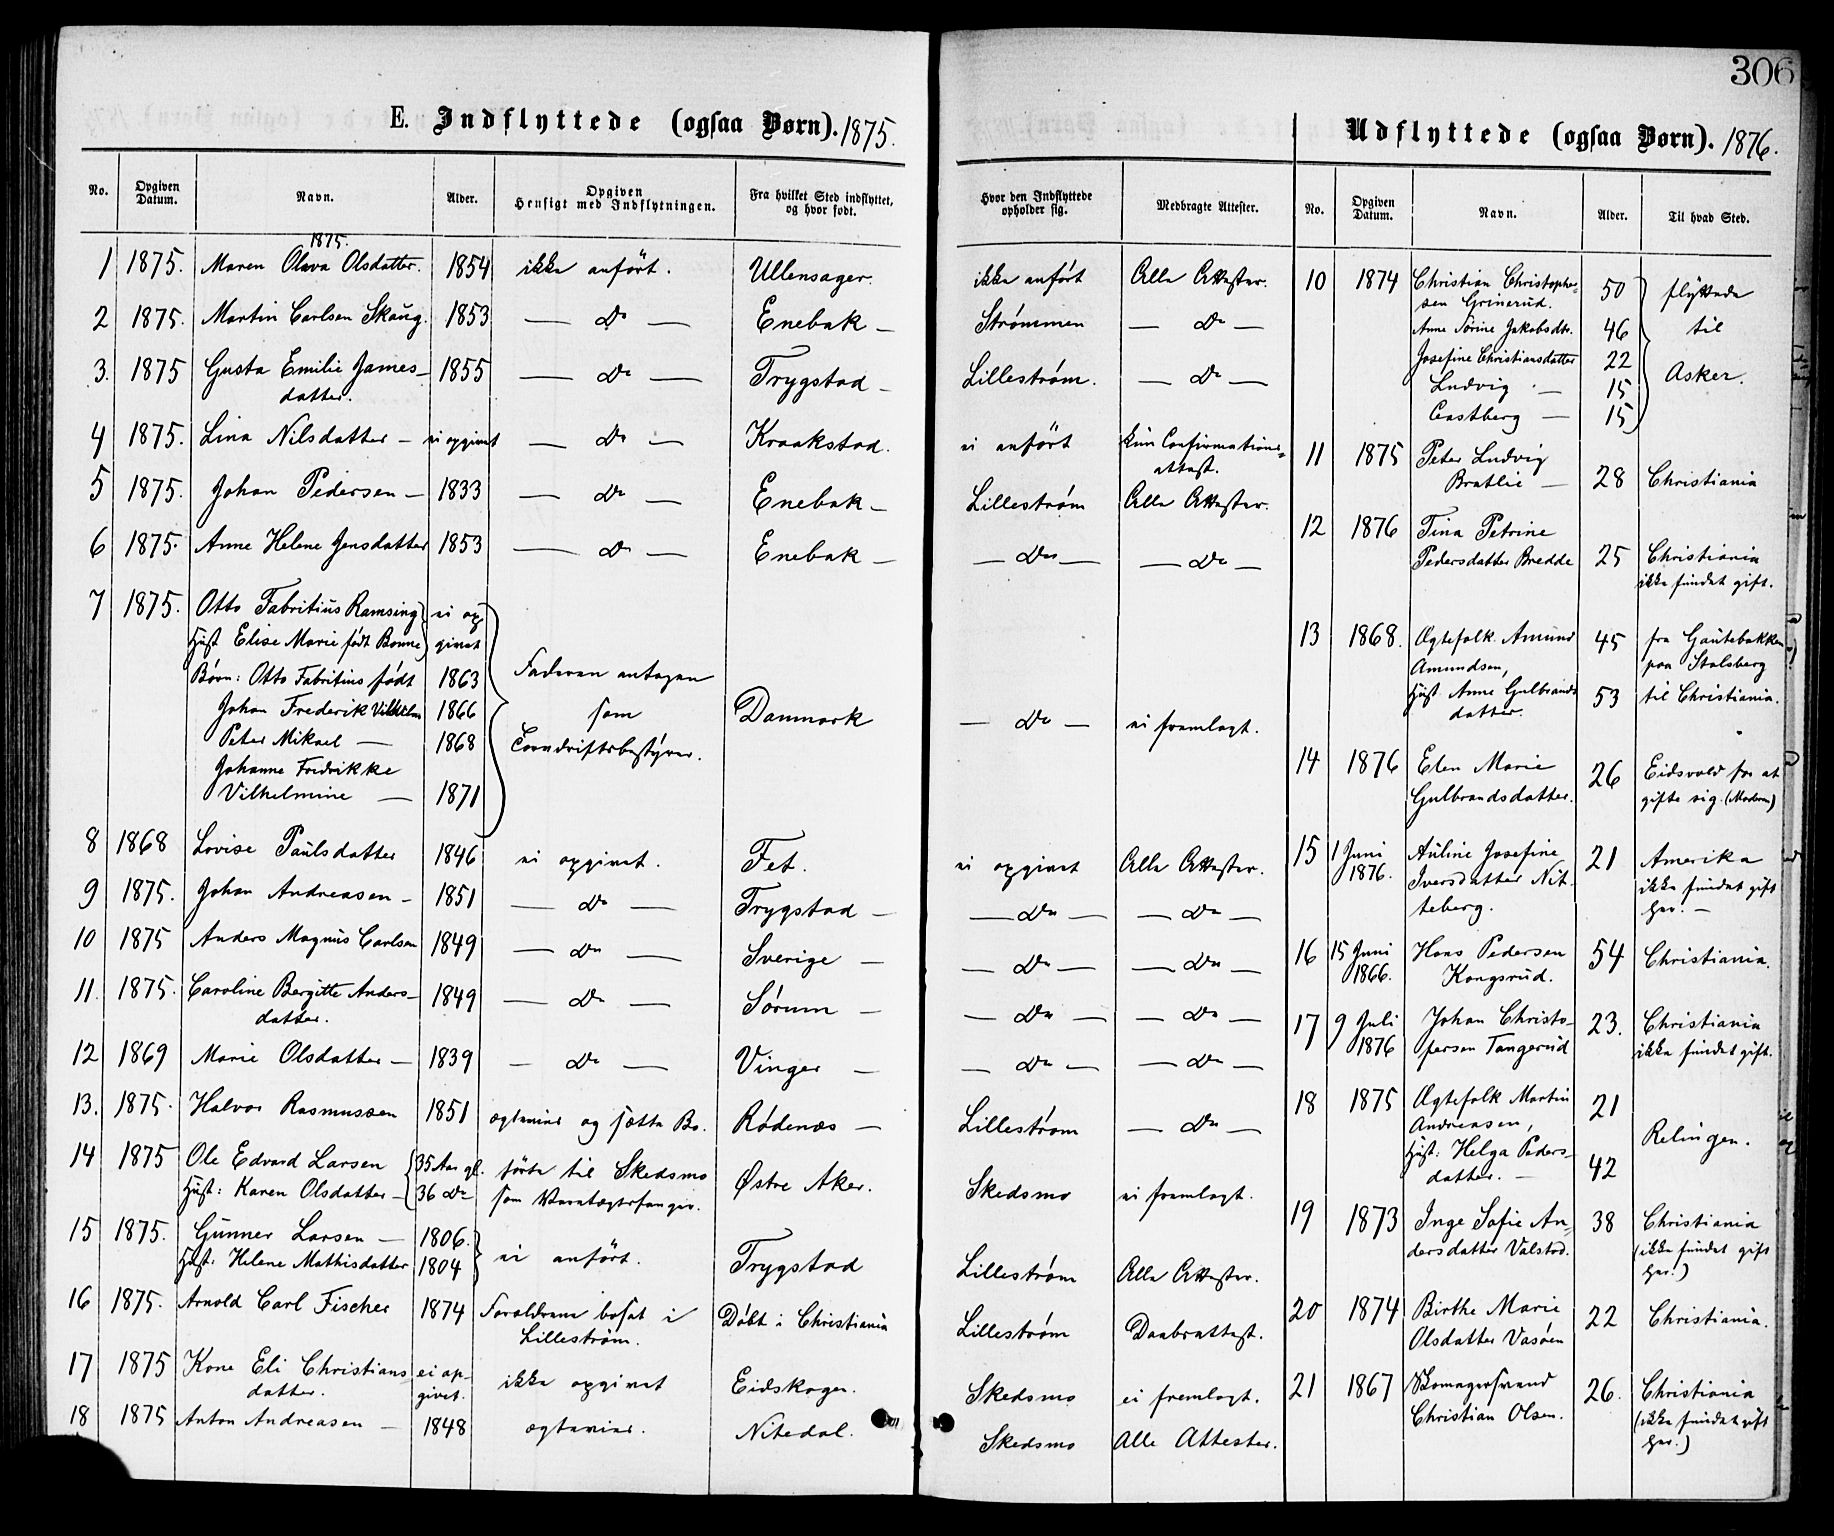 306
E. Indflyttede (ogsaa Børn). 1875.
No. Opgiven Datum. Navn. Alder. Opgiven Hensigt med Indflytningen. Fra hvilket Sted indflyttet, og hvor født. Hvor den Indflyttede opholder sig. Medbragte Attester.
1875.
1 1875. Maren Olava Olsdatter. 1854 ikke anført. Ullensager. ikke anført Alle Attester.
2 1875. Martin Carlsen Skaug. 1853 — Do — Enebak — Strømmen — Do —
3. 1875 Gusta Emilie James- 1855 — Do — Trygstad — Lillestrøm. — Do —
datter.
4 1875. Lina Nilsdatter — ei opgivet — Do — Kraakstad. ei anført kun Confirmations-
attest.
5 1875. Johan Pedersen — 1833 — Do — Enebak — Lillestrøm Alle Attester.
6 1875. Anne Helene Jensdatter 1853 — Do — Enebak — — Do — — Do —
7 1875. Otto Fabritius Ramsing ei op-
Hust Elise Marie født Bonne givet
Børn: Otto Fabritius født 1863 Faderen antagen
Johan Frederik Vilhelm 1866 som Danmark — Do — ei fremlagt.
Peter Mikael — 1868 bestyrer.
Johanne Fredrikke
Vilhelmine — 1871
8 1868 Lovise Paulsdatter 1846 ei opgivet. Fet. ei opgivet Alle Attester.
9 1875. Johan Andreasen — 1851 — Do — Trygstad — — Do — — Do —
10 1875 Anders Magnus Carlsen 1849 — Do — Sverige — — Do — — Do —
11. 1875. Caroline Bergitte Anders- 1849 — Do — Sørum — — Do — — Do —
datter.
12 1869 Marie Olsdatter — 1839 — Do — Vinger — — Do — — Do —
13. 1875. Halvor Rasmussen 1851 ægtevier og sætte Bo. Rødenæs — Lillestrøm — Do —
14 1875 Ole Edvard Larsen 35 Aar gl. førte til Skedsmo Østre Aker. Skedsmo ei fremlagt.
Hust: Karen Olsdatter — 36 Do som
15 1875. Gunner Larsen — 1806. ei anført. Trygstad Lillestrøm Alle Attester.
Hust: Helene Mathisdatter 1804
16 1875. Arnold Carl Fischer 1874 Forældrene bosat i Døbt i Christiania Lillestrøm Daabsattest.
Lillestrøm.
17 1875 Kone Eli Christians- ei op- ikke opgivet Eidskogen. Skedsmo ei fremlagt.
datter. givet.
18 1875 Anton Andreasen — 1848 ægtevier. Nitedal. Skedsmo Alle Attester.
Udflyttede (ogsaa Børn). 1876.
No. Opgiven Datum. Navn. Alder. Til hvad Sted.
10 1874 Christian Christopher- 50 flyttede
sen Grinerud.
Anne Sørine Jakobsdtr. 46 til
Josefine Christiansdatter 22
Ludvig — 15 Asker.
Castberg — 15
11 1875 Peter Ludvig
Bratlie — 28 Christiania
12 1876 Tina Petrine
Pedersdatter Bredde 25 Christiania
ikke fundet gift.
13 1868. Ægtefolk Amund 45 fra Gautebakken
Amundsen, paa Stalsberg
Hust Anne Gulbrands- 53 til Christiania.
datter.
14 1876 Elen Marie 26 Eidsvold for at
Gulbrandsdatter. gifte sig. (Moderen)
15 1 Juni Auline Josefine 21 Amerika
1876. Iversdatter Nit- ikke fundet gift
teberg. her. —
16 15 Juni Hans Pedersen 54 Christiania.
1866. Kongsrud.
17 9 Juli Johan Christo- 23. Christiania
1876 persen Tangerud ikke fundet gift.
18 1875 Ægtefolk Martin 21
Andreasen, Relingen.
Hust: Helga Peders-
datter. — 42
19 1873 Inge Sofie An- 38 Christiania
dersdatter Valstad. (ikke fundet gift
her.)
20 1874 Birthe Marie
Olsdatter Vasøen 22 Christiania.
21 1867 Skomagersvend 26. Christiania
Christian Olsen. (ikke fundet gift
her.)